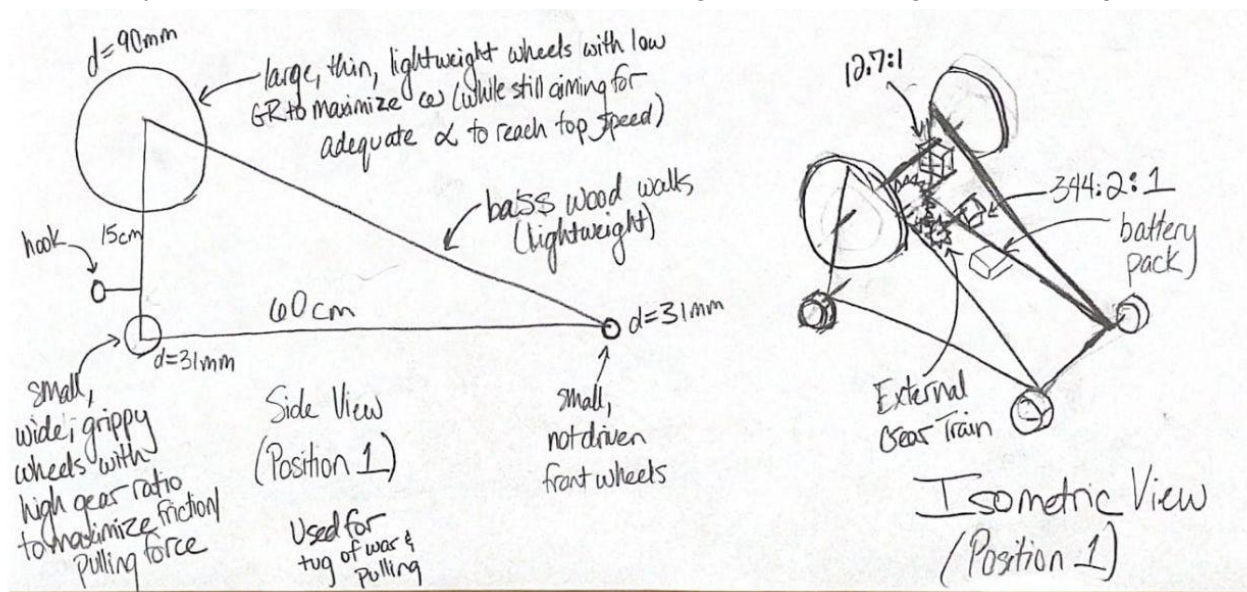 d=90mm
large, thin, lightweight wheels with low
GR to maximize ω (while still aiming for
adequate α to reach top speed)
bass wood walls
(lightweight)
hook
15cm
60cm
d=31mm
d=31mm
small,
wide, grippy
wheels with
high gear ratio
to maximize friction/
pulling force
Side View
(Position 1)
Used for
tug of war &
pulling
small,
not driven
front wheels
12.7:1
344:2:1
battery
pack
External
Gear Train
Isometric View
(Position 1)